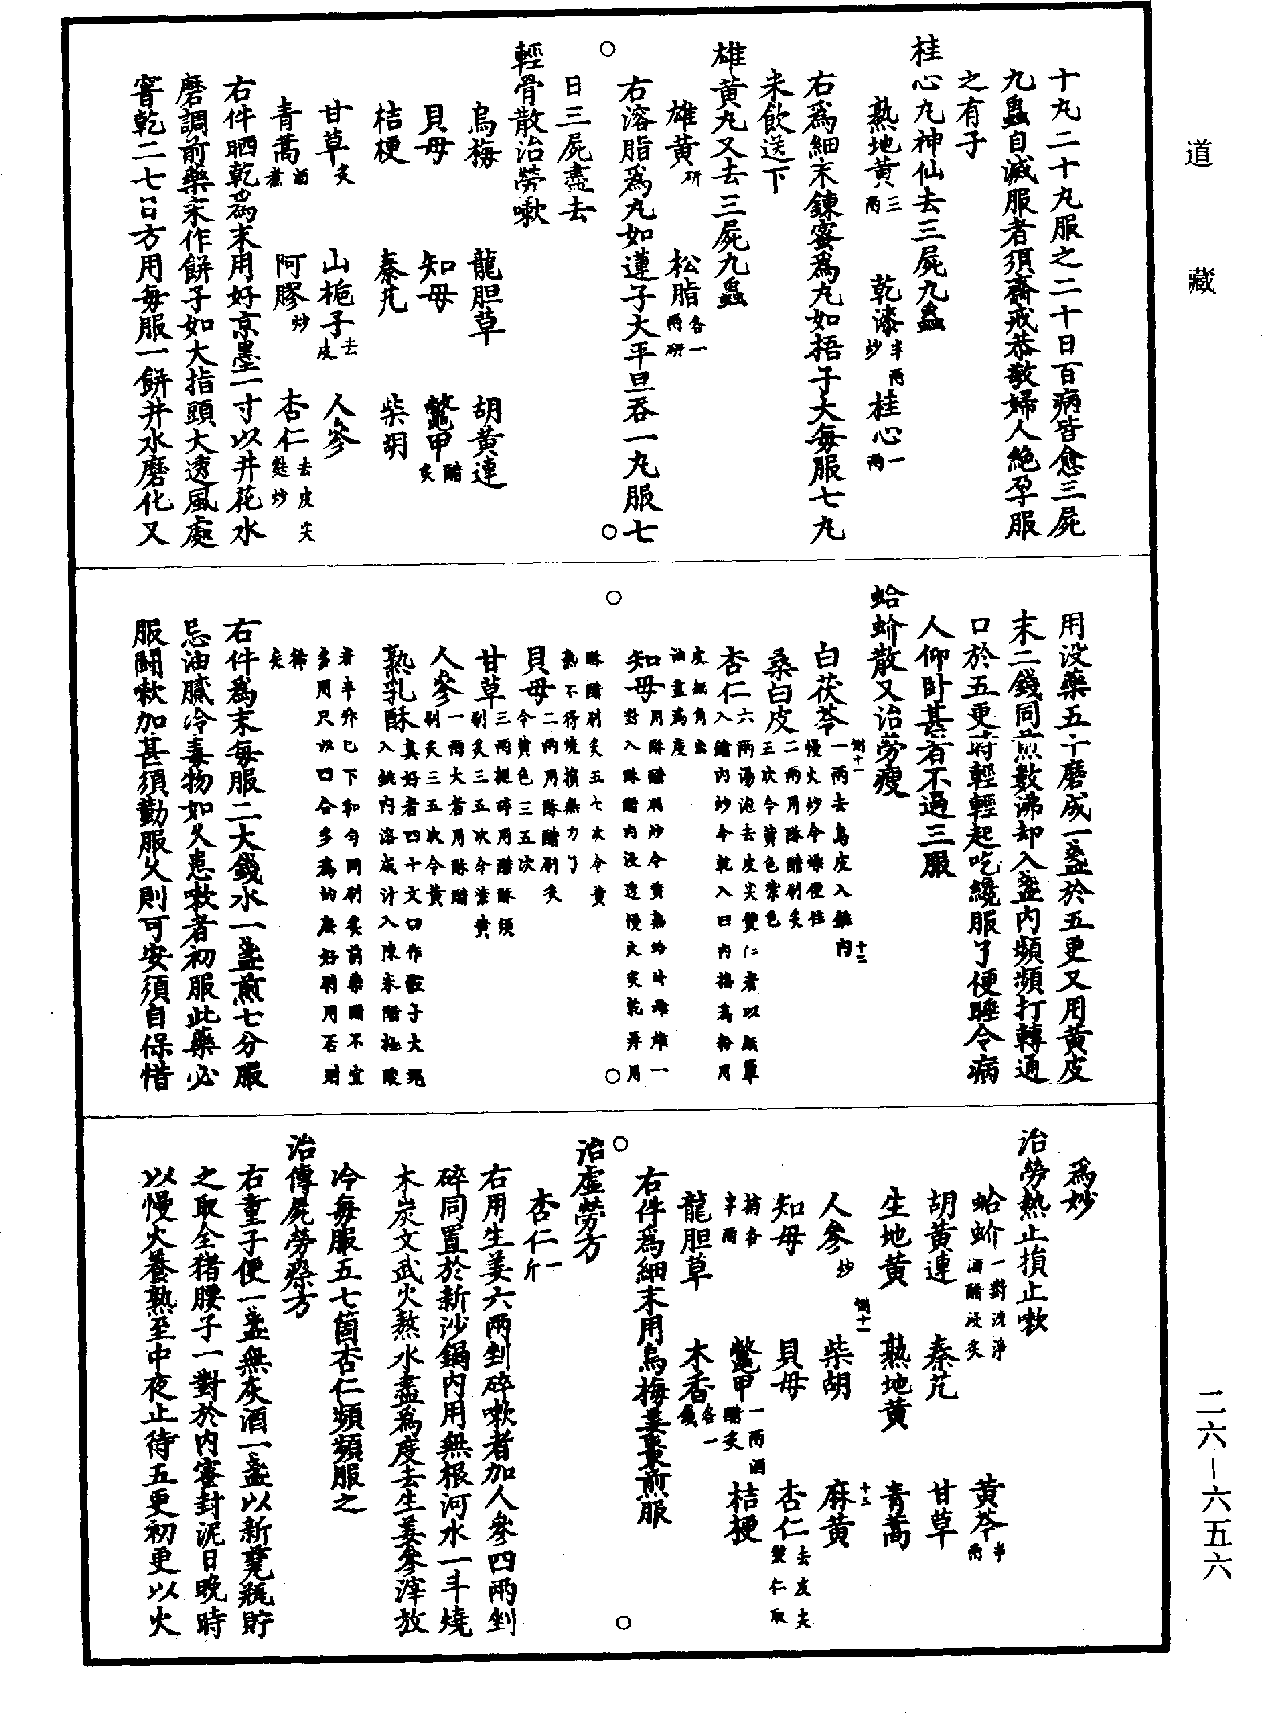 道藏
十丸二十丸服之二十日百病皆愈三屍
九蟲自滅服者須齋戒恭敬婦人絶孕服
之有子
桂心丸神仙去三屍九蟲
熟地黄三兩 乾漆半兩炒 桂心一兩
右爲細末鍊蜜爲丸如梧子大每服七丸
米飲送下
雄黄丸又去三屍九蟲
雄黄研 松脂各一兩研
右溶脂爲丸如蓮子大平旦吞一丸服七
日三屍盡去
輕骨散治勞嗽
烏梅 龍胆草 胡黄連
貝母 知母 鱉甲醋炙
桔梗 秦艽 柴胡
甘草炙 山梔子去皮 人參
青蒿酒煮 阿膠炒 杏仁去皮尖麩炒
右件晒乾爲末用好京墨一寸以井花水
磨調前藥末作餅子如大指頭大透風處
窨乾二七日方用每服一餅井水磨化又
用没藥五寸磨成一盞於五更又用黄皮
末二錢同煎數沸却入盞内頻頻打轉通
口於五更時輕輕起吃纔服了便睡令病
人仰卧甚者不過三服
蛤蚧散又治勞瘦
白茯苓一兩去烏皮入銚内慢火炒令燥便住
桑白皮二兩用酥醋刷炙五次令黄色紫色
杏仁六兩湯泡去皮尖雙仁者以紙單入鐺内炒令乾入臼内搗爲粉用皮紙角出油盡爲度
知母用酥醋炒令黄爲 蛤蚧雌雄一對入酥醋内浸透慢火炙乾再用酥醋刷炙五七次令黄熟不得燒損無力了
貝母二兩用酥醋刷炙令黄色三五次
甘草三兩搥碎用醋酥須刷炙三五次令紫黄
人參一兩大者用酥醋刷炙三五次令黄
熟乳酥真好者四十文切作骰子大塊入銚内溶成汁入陳米醋極酸者半升已下和匀同刷炙前藥醋不宜多用只以四合多爲的應好刷用否則稀矣
右件爲末每服二大錢水一盞煎七分服
忌油膩冷毒物如久患嗽者初服此藥必
服鬭嗽加甚須勤服久則可安須自保惜
爲妙
治勞熱止損止嗽
蛤蚧一對洗淨酒醋浸炙 黄芩半兩
胡黄連 秦艽 甘草
生地黄 熟地黄 青蒿
人參炒 柴胡 麻黄
知母 貝母 杏仁去皮尖雙仁取
搗各半兩 鱉甲一兩酒醋炙 桔梗
龍胆草 木香各一錢
右件爲細末用烏梅薑棗煎服
治虚勞方
杏仁一斤
右用生姜六兩剉碎嗽者加人參四兩剉
碎同置於新沙鍋内用無根河水一斗燒
木炭文武火熬水盡爲度去生姜參滓放
冷每服五七箇杏仁頻頻服之
治傳屍勞瘵方
右童子便一盞無灰酒一盞以新甆瓶貯
之取全猪腰子一對於内密封泥日晚時
以慢火養熟至中夜止待五更初更以火
二六-六五六